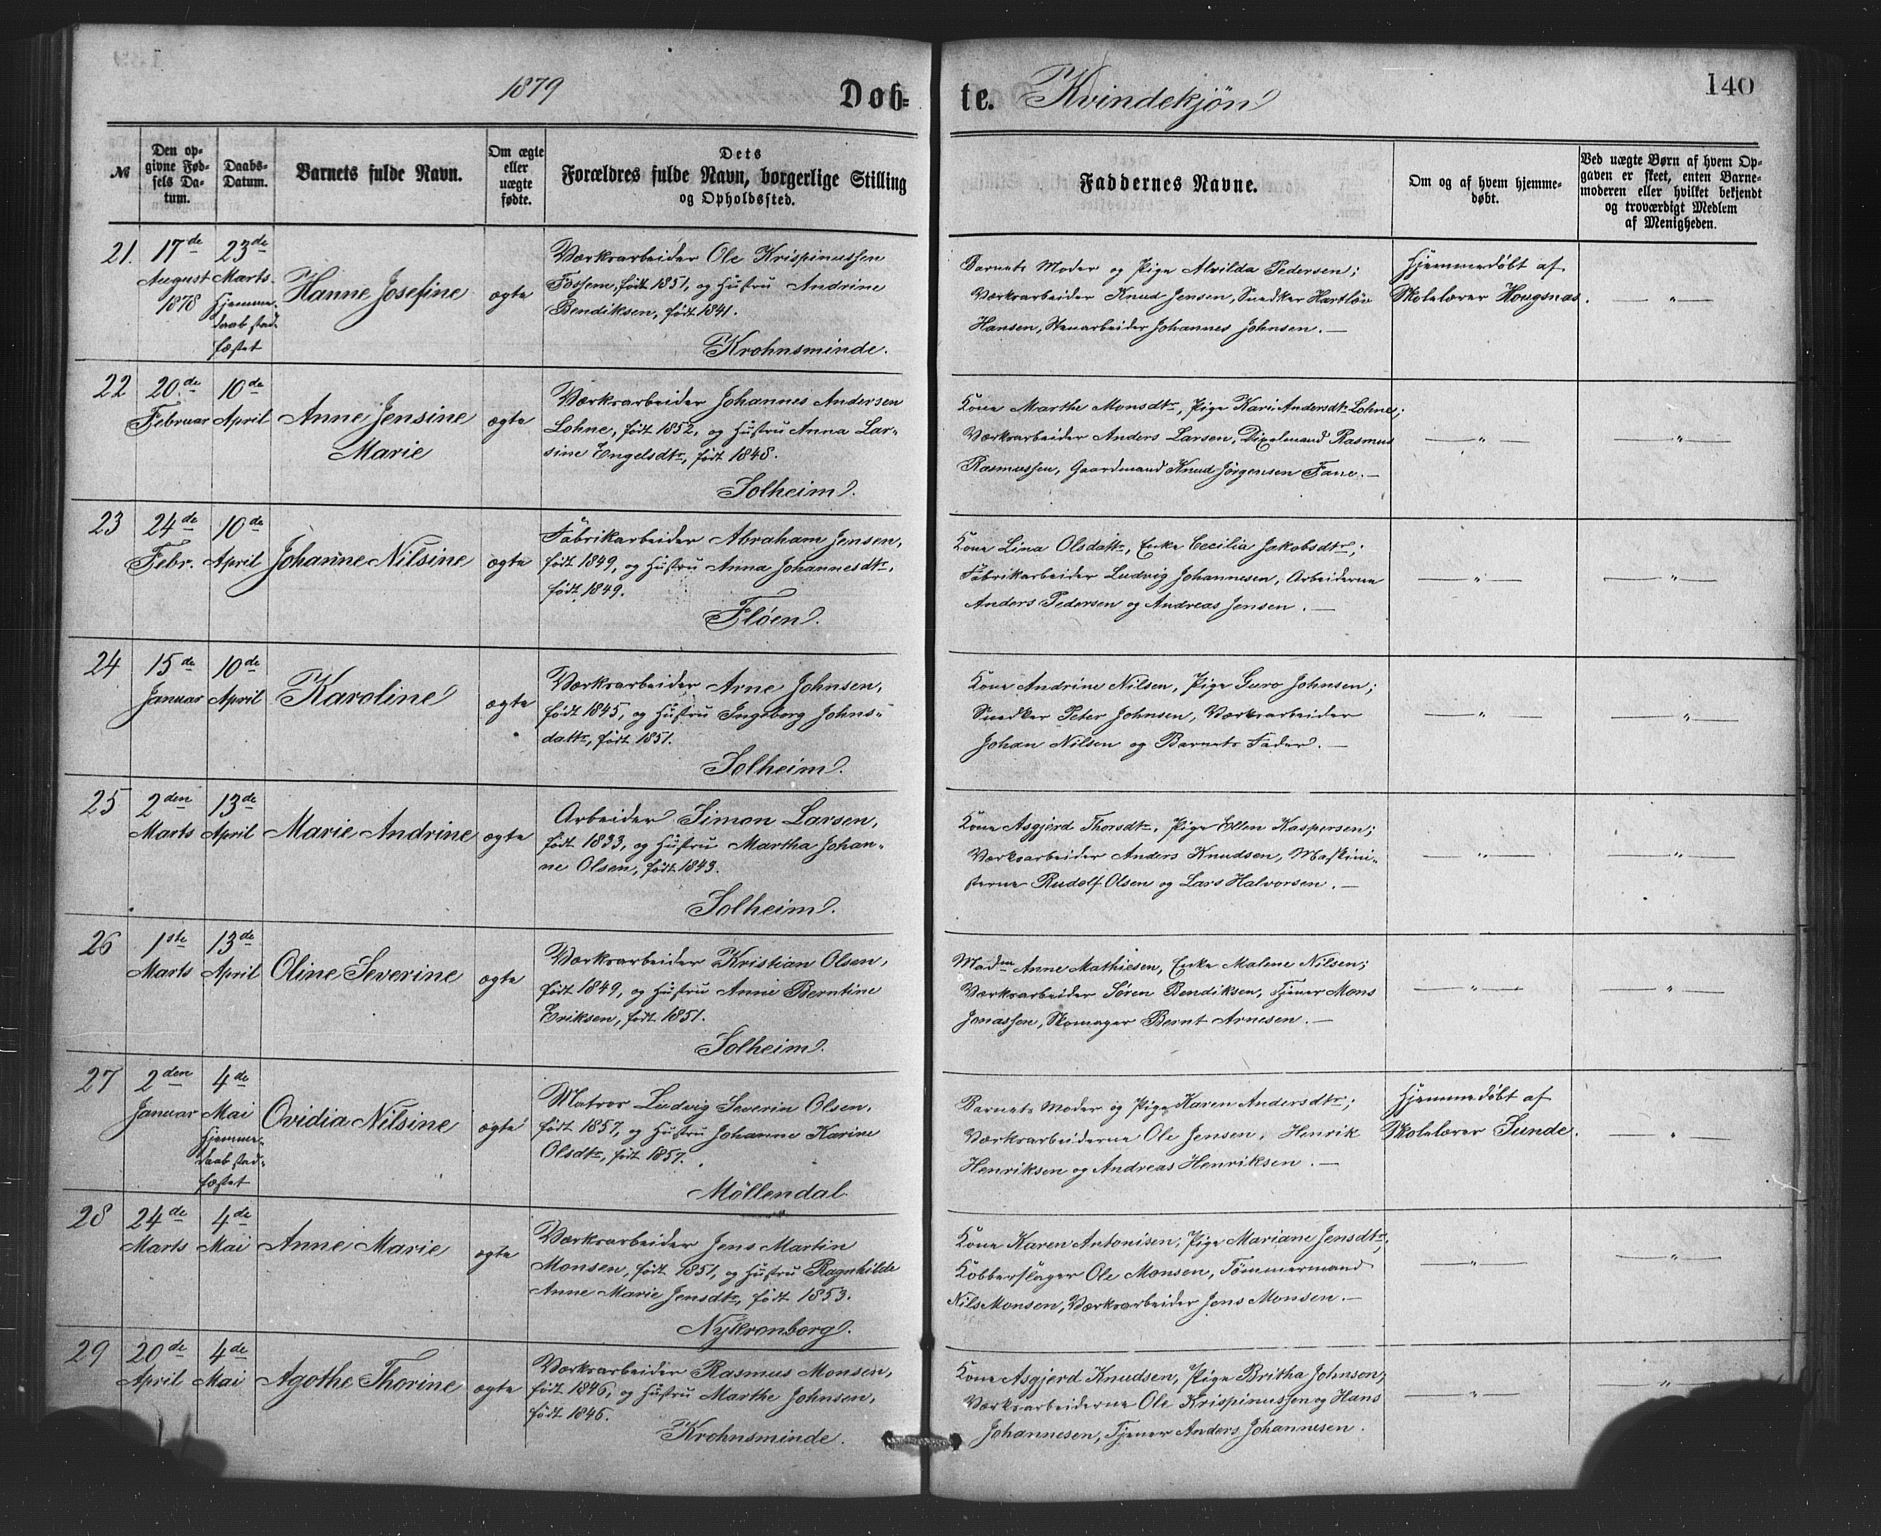 1879
Døb=
te. Kvindekjøn
140
№
Den op=
givne Fød=
sels Da=
tum.
Daabs=
Datum.
Barnets fulde Navn.
Om ægte
eller
uægte
fødte.
Dets
Forældres fulde Navn, borgerlige Stilling
og Opholdssted.
Faddernes Navne.
Om og af hvem hjemme=
døbt.
Ved uægte Børn af hvem Op=
gaven er skeet, enten Barne=
moderen eller hvilket bekjendt
og troværdigt Medlem
af Menigheden.
21.
17de
August
1878
23de
Marts.
Hjemme=
daab stad=
fæstet
Hanne Josefine
ægte
Værksarbeider Ole Krispinussen
Fossem, født 1851, og Hustru Andrine
Bendiksen, født 1841.
Krohnsminde.
Barnets Moder og Pige Alvilda Pedersen;
Værksarbeider Knud Jensen, Snedker Hartløv
Hansen, Stenarbeider Johannes Johnsen. —
Hjemmedøbt af
Skolelærer Hougsnæs.
— „ —
22
20de
Februar
10de
April
Anne Jensine
Marie
ægte
Værksarbeider Johannes Andersen
Lohne, født 1852, og Hustru Anna Lar=
sine Engelsdtr, født 1848.
Solheim.
Kone Marthe Monsdtr, Pige Kari Andersdtr Lohne;
Værksarbeider Anders Larsen, Dixelmand Rasmus
Rasmussen, Gaardmand Knud Jørgensen Fane. —
— „ —
— „ —
23
24de
Febr.
10de
April
Johanne Nilsine
ægte
Fabrikarbeider Abraham Jensen,
født 1849, og Hustru Anna Johannesdtr,
født 1849.
Fløen.
Kone Lina Olsdatr, Enke Cecilia Jakobsdtr;
Fabrikarbeider Ludvig Johannesen, Arbeiderne
Anders Pedersen og Andreas Jensen. —
— „ —
— „ —
24
15de
Januar
10de
April
Karoline
ægte
Værksarbeider Arne Johnsen,
født 1845, og Hustru Ingeborg Johns=
datr, født 1851.
Solheim.
Kone Andrine Nilsen, Pige Guro Johnsen;
Snedker Peter Johnsen, Værksarbeider
Johan Nilsen og Barnets Fader. —
— „ —
— „ —
25
2den
Marts
13de
April
Marie Andrine
ægte
Arbeider Simon Larsen,
født 1833, og Hustru Martha Johan=
ne Olsen, født 1843.
Solheim.
Kone Asgjerd Thorsdtr, Pige Ellen Kaspersen;
Værksarbeider Anders Knudsen, Maskini=
sterne Rudolf Olsen og Lars Halvorsen. —
— „ —
— „ —
26
1ste
Marts
13de
April
Oline Severine
ægte
Værksarbeider Kristian Olsen,
født 1849, og Hustru Anne Berntine
Eriksen, født 1851.
Solheim.
Madm Anne Mathiesen, Enke Malene Nilsen;
Værksarbeider Søren Bendiksen, Tjener Mons
Jonassen, Skomager Bernt Arnesen. —
— „ —
— „ —
27
2den
Januar
4de
Mai
Hjemme=
daab stad=
fæstet
Ovidia Nilsine
ægte
Matros Ludvig Severin Olsen,
født 1857, og Hustru Johanne Karine
Olsdtr, født 1857.
Möllendal.
Barnets Moder og Pige Karen Andersdtr;
Værksarbeiderne Ole Jensen, Henrik
Henriksen og Andreas Henriksen. —
Hjemmedøbt af
Skolelærer Sunde.
— „ —
28
24de
Marts
4de
Mai
Anne Marie
ægte
Værksarbeider Jens Martin
Monsen, født 1851, og Hustru Ragnhilde
Anne Marie Jensdtr, født 1853.
Nykronborg.
Kone Karen Antonisen, Pige Mariane Jensdtr;
Kobberslager Ole Monsen, Tömmermand
Nils Monsen, Værksarbeider Jens Monsen. —
— „ —
— „ —
29
20de
April
4de
Mai
Agothe Thorine
ægte
Værksarbeider Rasmus Monsen,
født 1846, og Hustru Marthe Johnsen,
født 1846.
Krohnsminde.
Kone Asgjerd Knudsen, Pige Britha Johnson;
Værksarbeiderne Ole Krispinussen og Hans
Johannesen, Tjener Anders Johannesen.
— „ —
— „ —